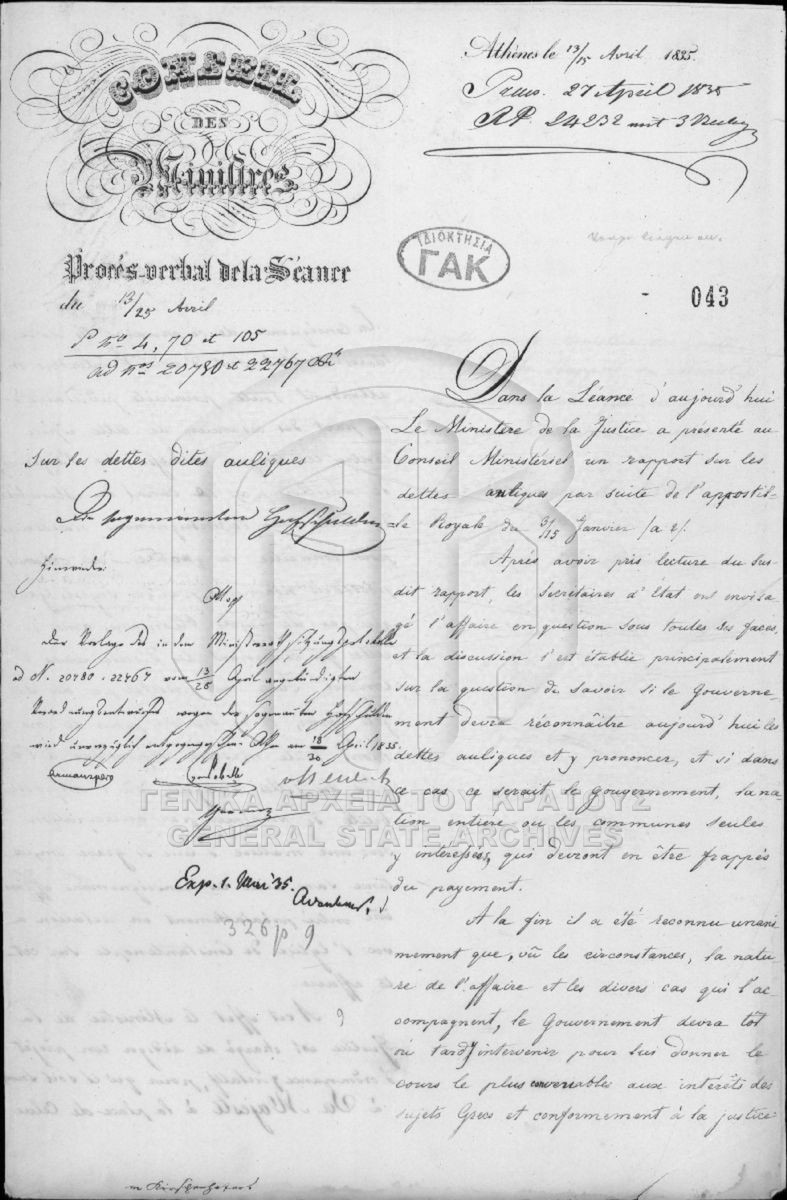 CONSEIL
DES
Ministres
Procés-verbal de la Séance
du 13/25 Avril
P nos 4, 70 et 105
ad nos 20780 et 22767
Sur les dettes dites auliques
Athènes le 13/15 Avril 1835.
Praes. 27 April 1835
RP. 24232 mit 3
ΙΔΙΟΚΤΗΣΙΑ
ΓΑΚ
043
Dans la Séance d'aujourd'hui
Le Ministère de la Justice a présenté au
Conseil Ministériel un rapport sur les
dettes auliques par suite de l'appostil-
le Royale du 3/15 Janvier /a c/.
Après avoir pris lecture du sus
dit rapport, les Secrétaires d'État ont envisa
gé l'affaire en question sous toutes ses faces,
et la discussion s'est établie principalement
sur la question de savoir si le Gouverne-
ment devra réconnaître aujourd'hui les
dettes auliques et y prononcer, et si dans
ce cas ce serait le Gouvernement, la na-
tion entière ou les communes seules
y interessées, qui devront en être frappés
du payement.
A la fin il a été reconnu unani
mement que, vû les circonstances, la natu-
re de l'affaire et les divers cas qui l'ac-
compagnent, le Gouvernement devra tôt
où tard intervenir pour lui donner le
cours le plus convenables aux interêts des
sujets Grecs et conformement à la justice
Die sogenannten Hofschulden
Hinwieder
Der Vorlage des in dem Ministerrathssitzungsprotokolle
ad N. 20780. 22767 vom 13/25 April angekündigten
Verordnungsentwurfes wegen der sogenannten Hofschulden
wird unverzüglich entgegengesehen. Athen am 18/30 April 1835.
Armansperg
Exp. 1. Mai 35.
326 p 9
ΓΕΝΙΚΑ ΑΡΧΕΙΑ ΤΟΥ ΚΡΑΤΟΥΣ
GENERAL STATE ARCHIVES